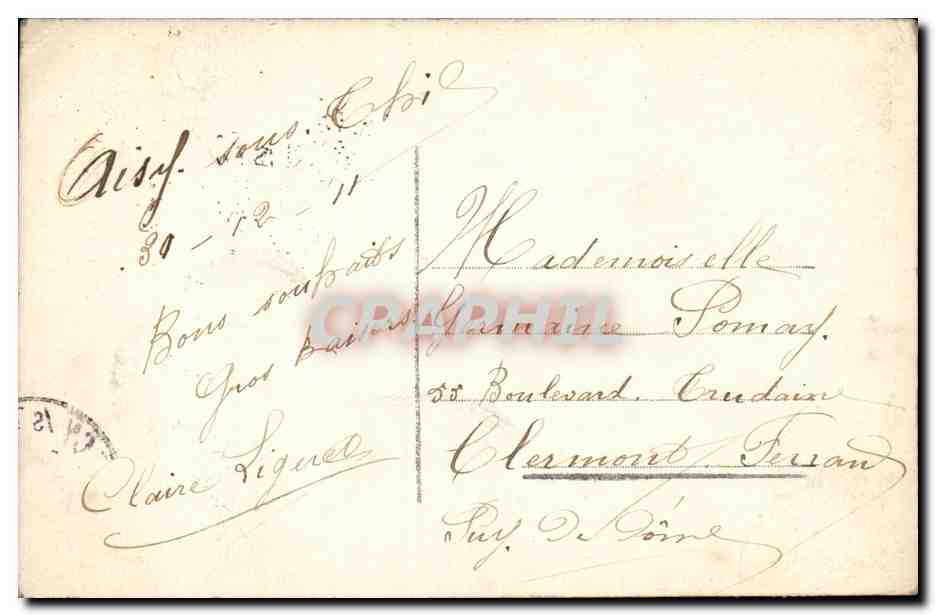 Aisy. sous. Thil
30 - 12 - 11
Bons souhaits
Gros baisers
Claire
Mademoiselle
Germaine Pomay.
55 Boulevard. Trudaine
Clermont. Ferrand
Puy. De Dôme
CPAPHIL